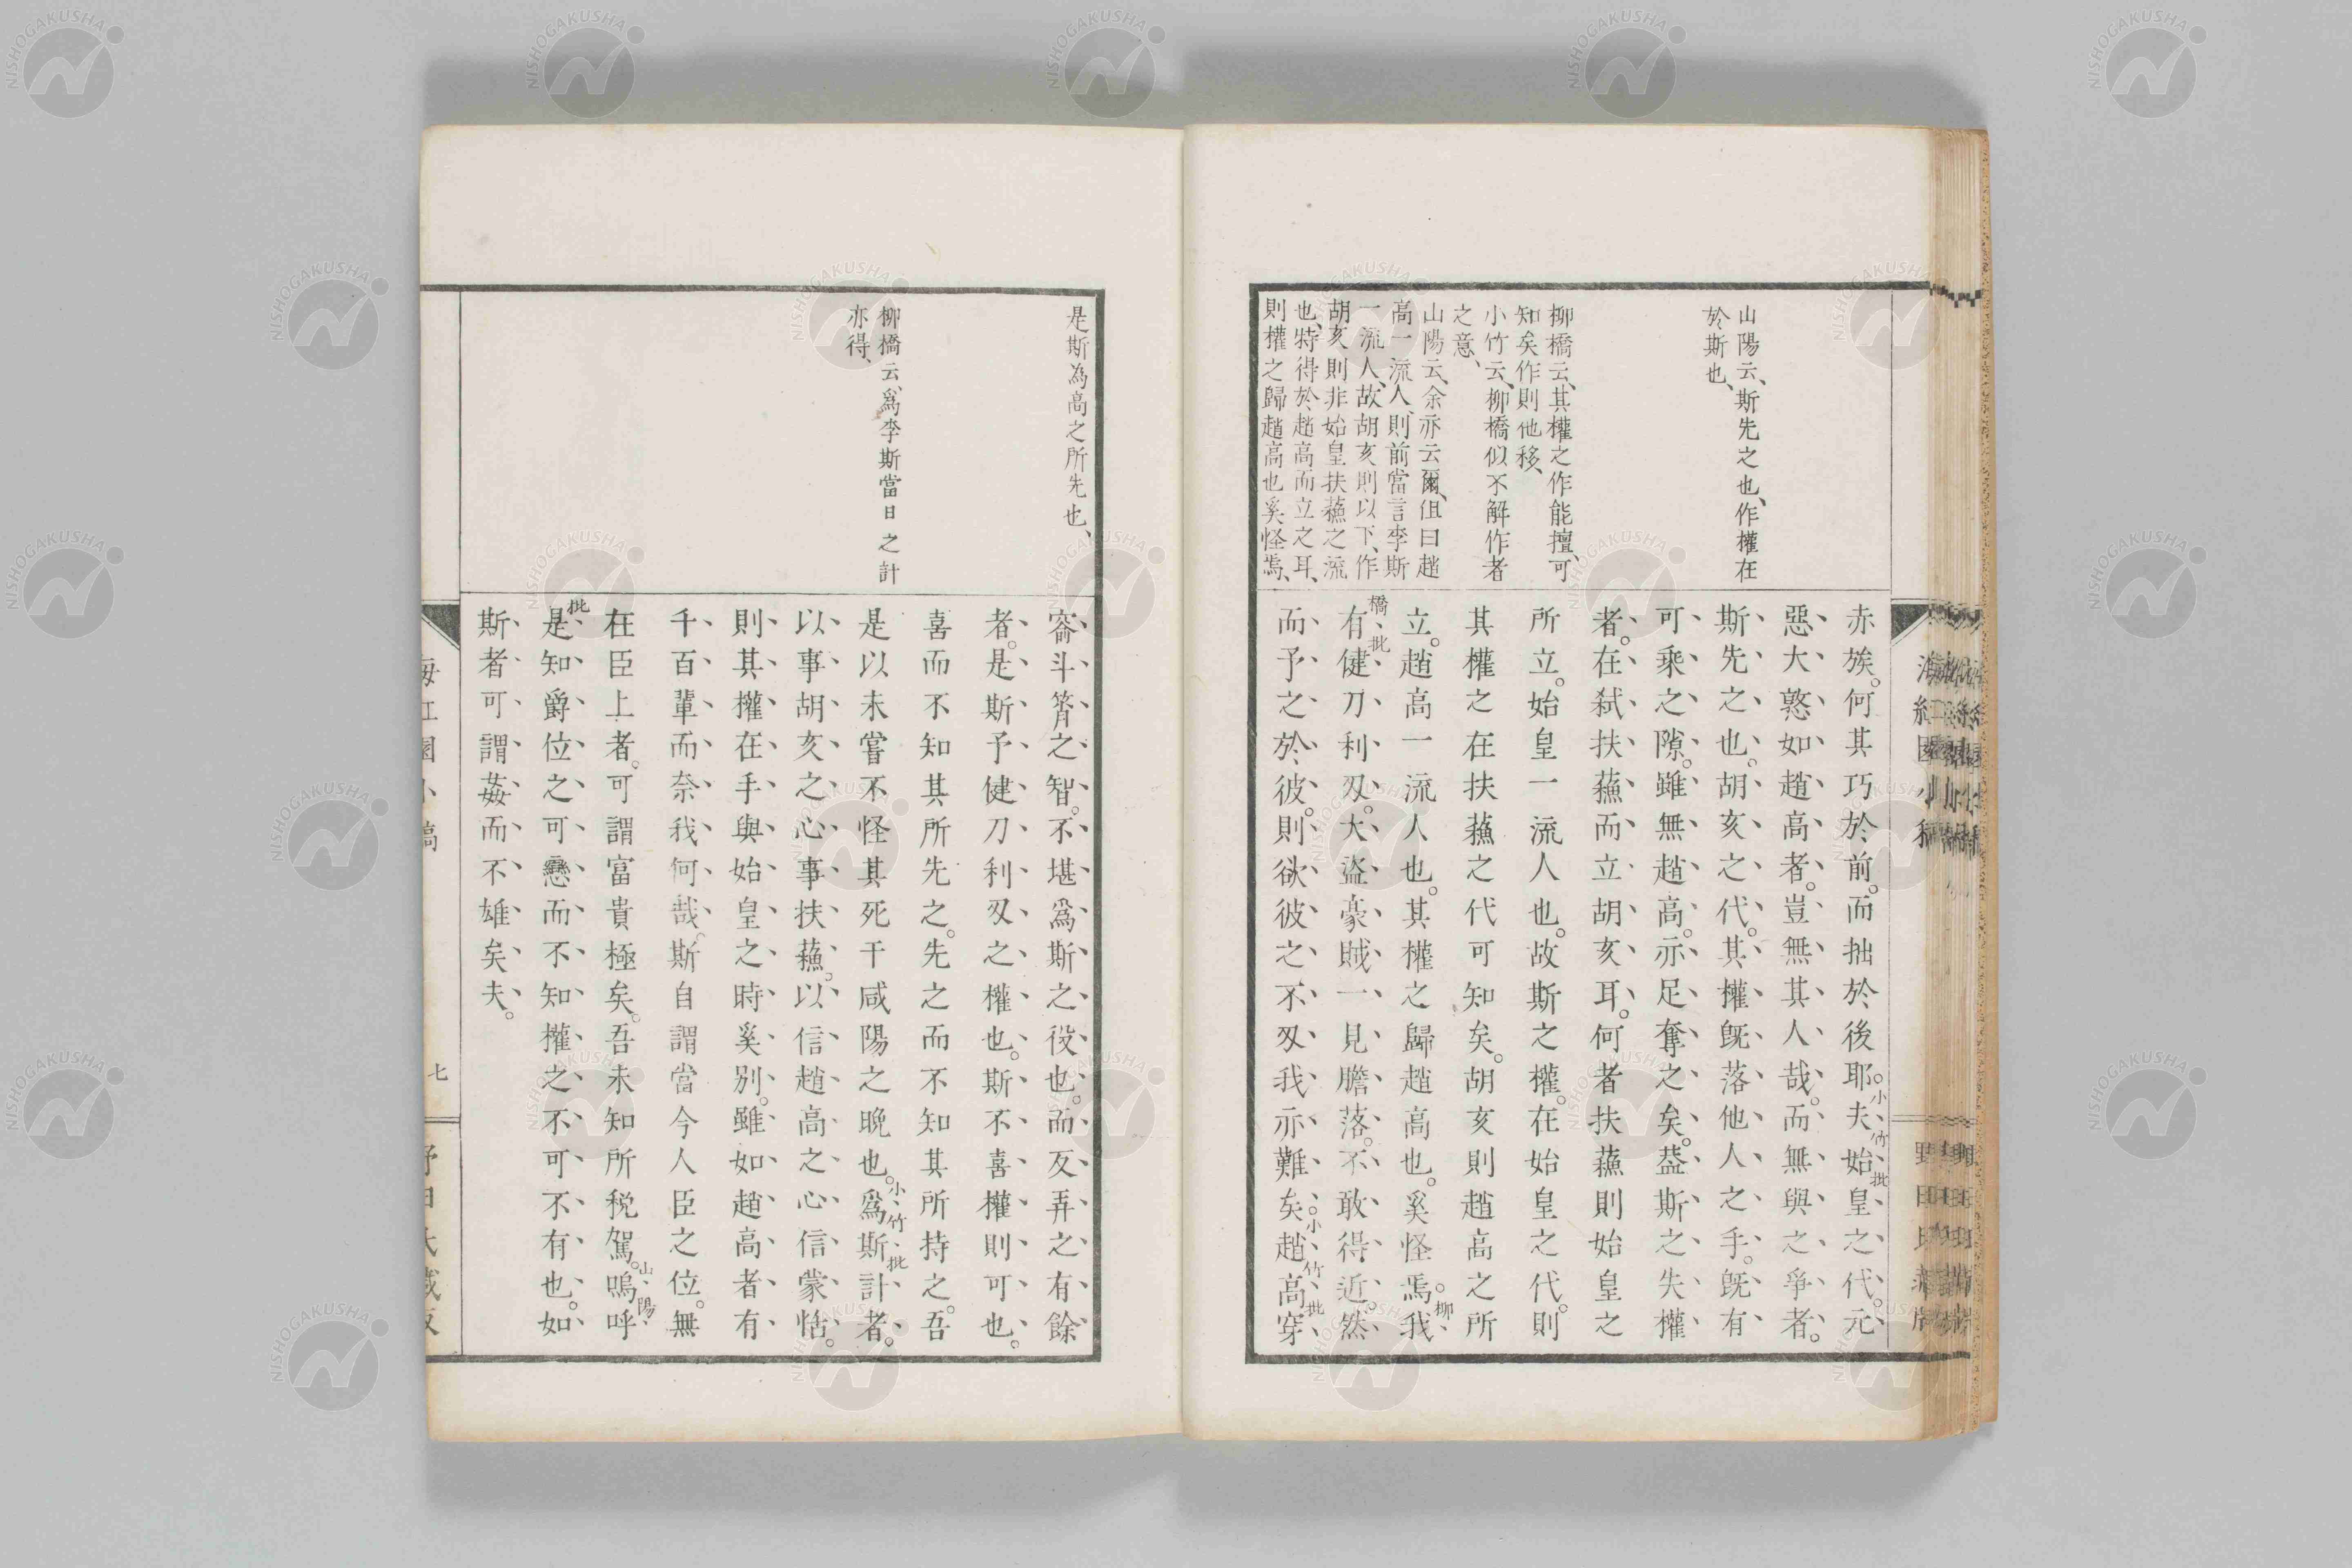 山陽云、斯先之也、作權在
於斯也、
柳橋云、其權之作能擅、可
知矣作則他移、
小竹云、柳橋似不解作者
之意、
山陽云、余亦云爾、但曰趙
高一流人、則前當言李斯
一流人、故胡亥則以下、作
胡亥則非始皇扶蘓之流
也、特得於趙高而立之耳、
則權之歸趙高也奚怪焉、
赤族。何其巧於前。而拙於後耶。夫始皇之代。元
惡大憝如趙高者。豈無其人哉。而無與之爭者。
斯先之也。胡亥之代。其權旣落他人之手。旣有
可乘之隙。雖無趙高。亦足奪之矣。葢斯之失權
者。在弑扶蘓而立胡亥耳。何者扶蘓則始皇之
所立。始皇一流人也。故斯之權。在始皇之代。則
其權之在扶蘓之代可知矣。胡亥則趙高之所
立。趙高一流人也。其權之歸趙高也。奚怪焉。我
有健刀利刄。大盜豪賊一見膽落。不敢得近。然
而予之於彼。則欲彼之不刄我亦難矣。趙高穿
小竹批
柳
橋批
小竹批
是斯為高之所先也、
柳橋云、爲李斯當日之計
亦得、
窬斗筲之智。不堪爲斯之役也。而反弄之有餘
者。是斯予健刀利刄之權也。斯不喜權則可也。
喜而不知其所先之。先之而不知其所持之。吾
是以未嘗不怪其死于咸陽之晩也。爲斯計者。
以事胡亥之心事扶蘓。以信趙高之心信蒙恬。
則其權在手與始皇之時奚別。雖如趙高者有
千百輩而奈我何哉。斯自謂當今人臣之位。無
在臣上者。可謂富貴極矣。吾未知所税駕。嗚呼
是知爵位之可戀而不知權之不可不有也。如
斯者可謂姦而不雄矣夫。
小竹批
山陽
批
七